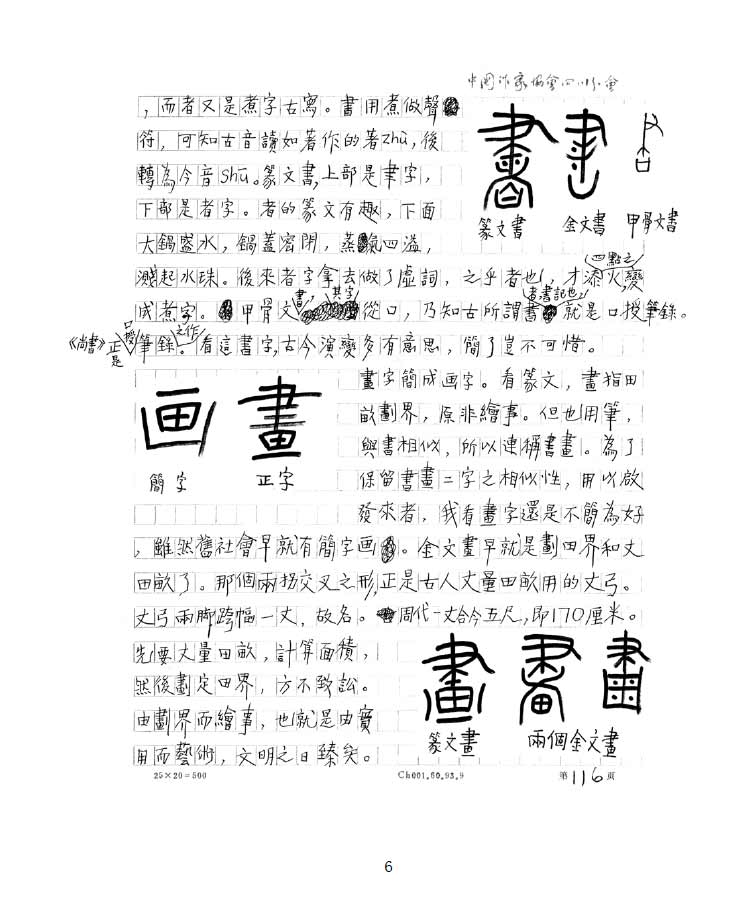 中国作家協會四川分會
，而者又是煮字古寫。書用煮做聲
符，可知古音讀如著作的著zhù，後
轉為今音shū。篆文書，上部是聿字，
下部是者字。者的篆文有趣，下面
大鍋盛水，鍋蓋密閉，蒸氣四溢，
濺起水珠。後來者字拿去做了虛詞，之乎者也，才添四點之火，變
成煮字。甲骨文書，其字從口，乃知古所謂書者書記也，就是口授筆錄。
《尚書》正是口授筆錄之作。看這書字，古今演變多有意思，簡了豈不可惜。
書 書
篆文書 金文書 甲骨文書
畫字簡成画字。看篆文，畫指田
畝劃界，原非繪事。但也用筆，
與書相似，所以連稱書畫。為了
保留書畫二字之相似性，用以啟
發來者，我看畫字還是不簡為好
画 畫
簡字 正字
，雖然舊社會早就有簡字画。金文畫早就是劃田界和丈
田畝了。那個兩拐交叉之形，正是古人丈量田畝用的丈弓。
丈弓兩脚跨幅一丈，故名。周代一丈合今五尺，即170厘米。
先要丈量田畝，計算面積，
然後劃定田界，方不致訟。
由劃界而繪事，也就是由實
用而藝術，文明之日臻矣。
畫 畫 畫
篆文畫 兩個金文畫
25×20=500 Ch001.60.93.9 第116页
6